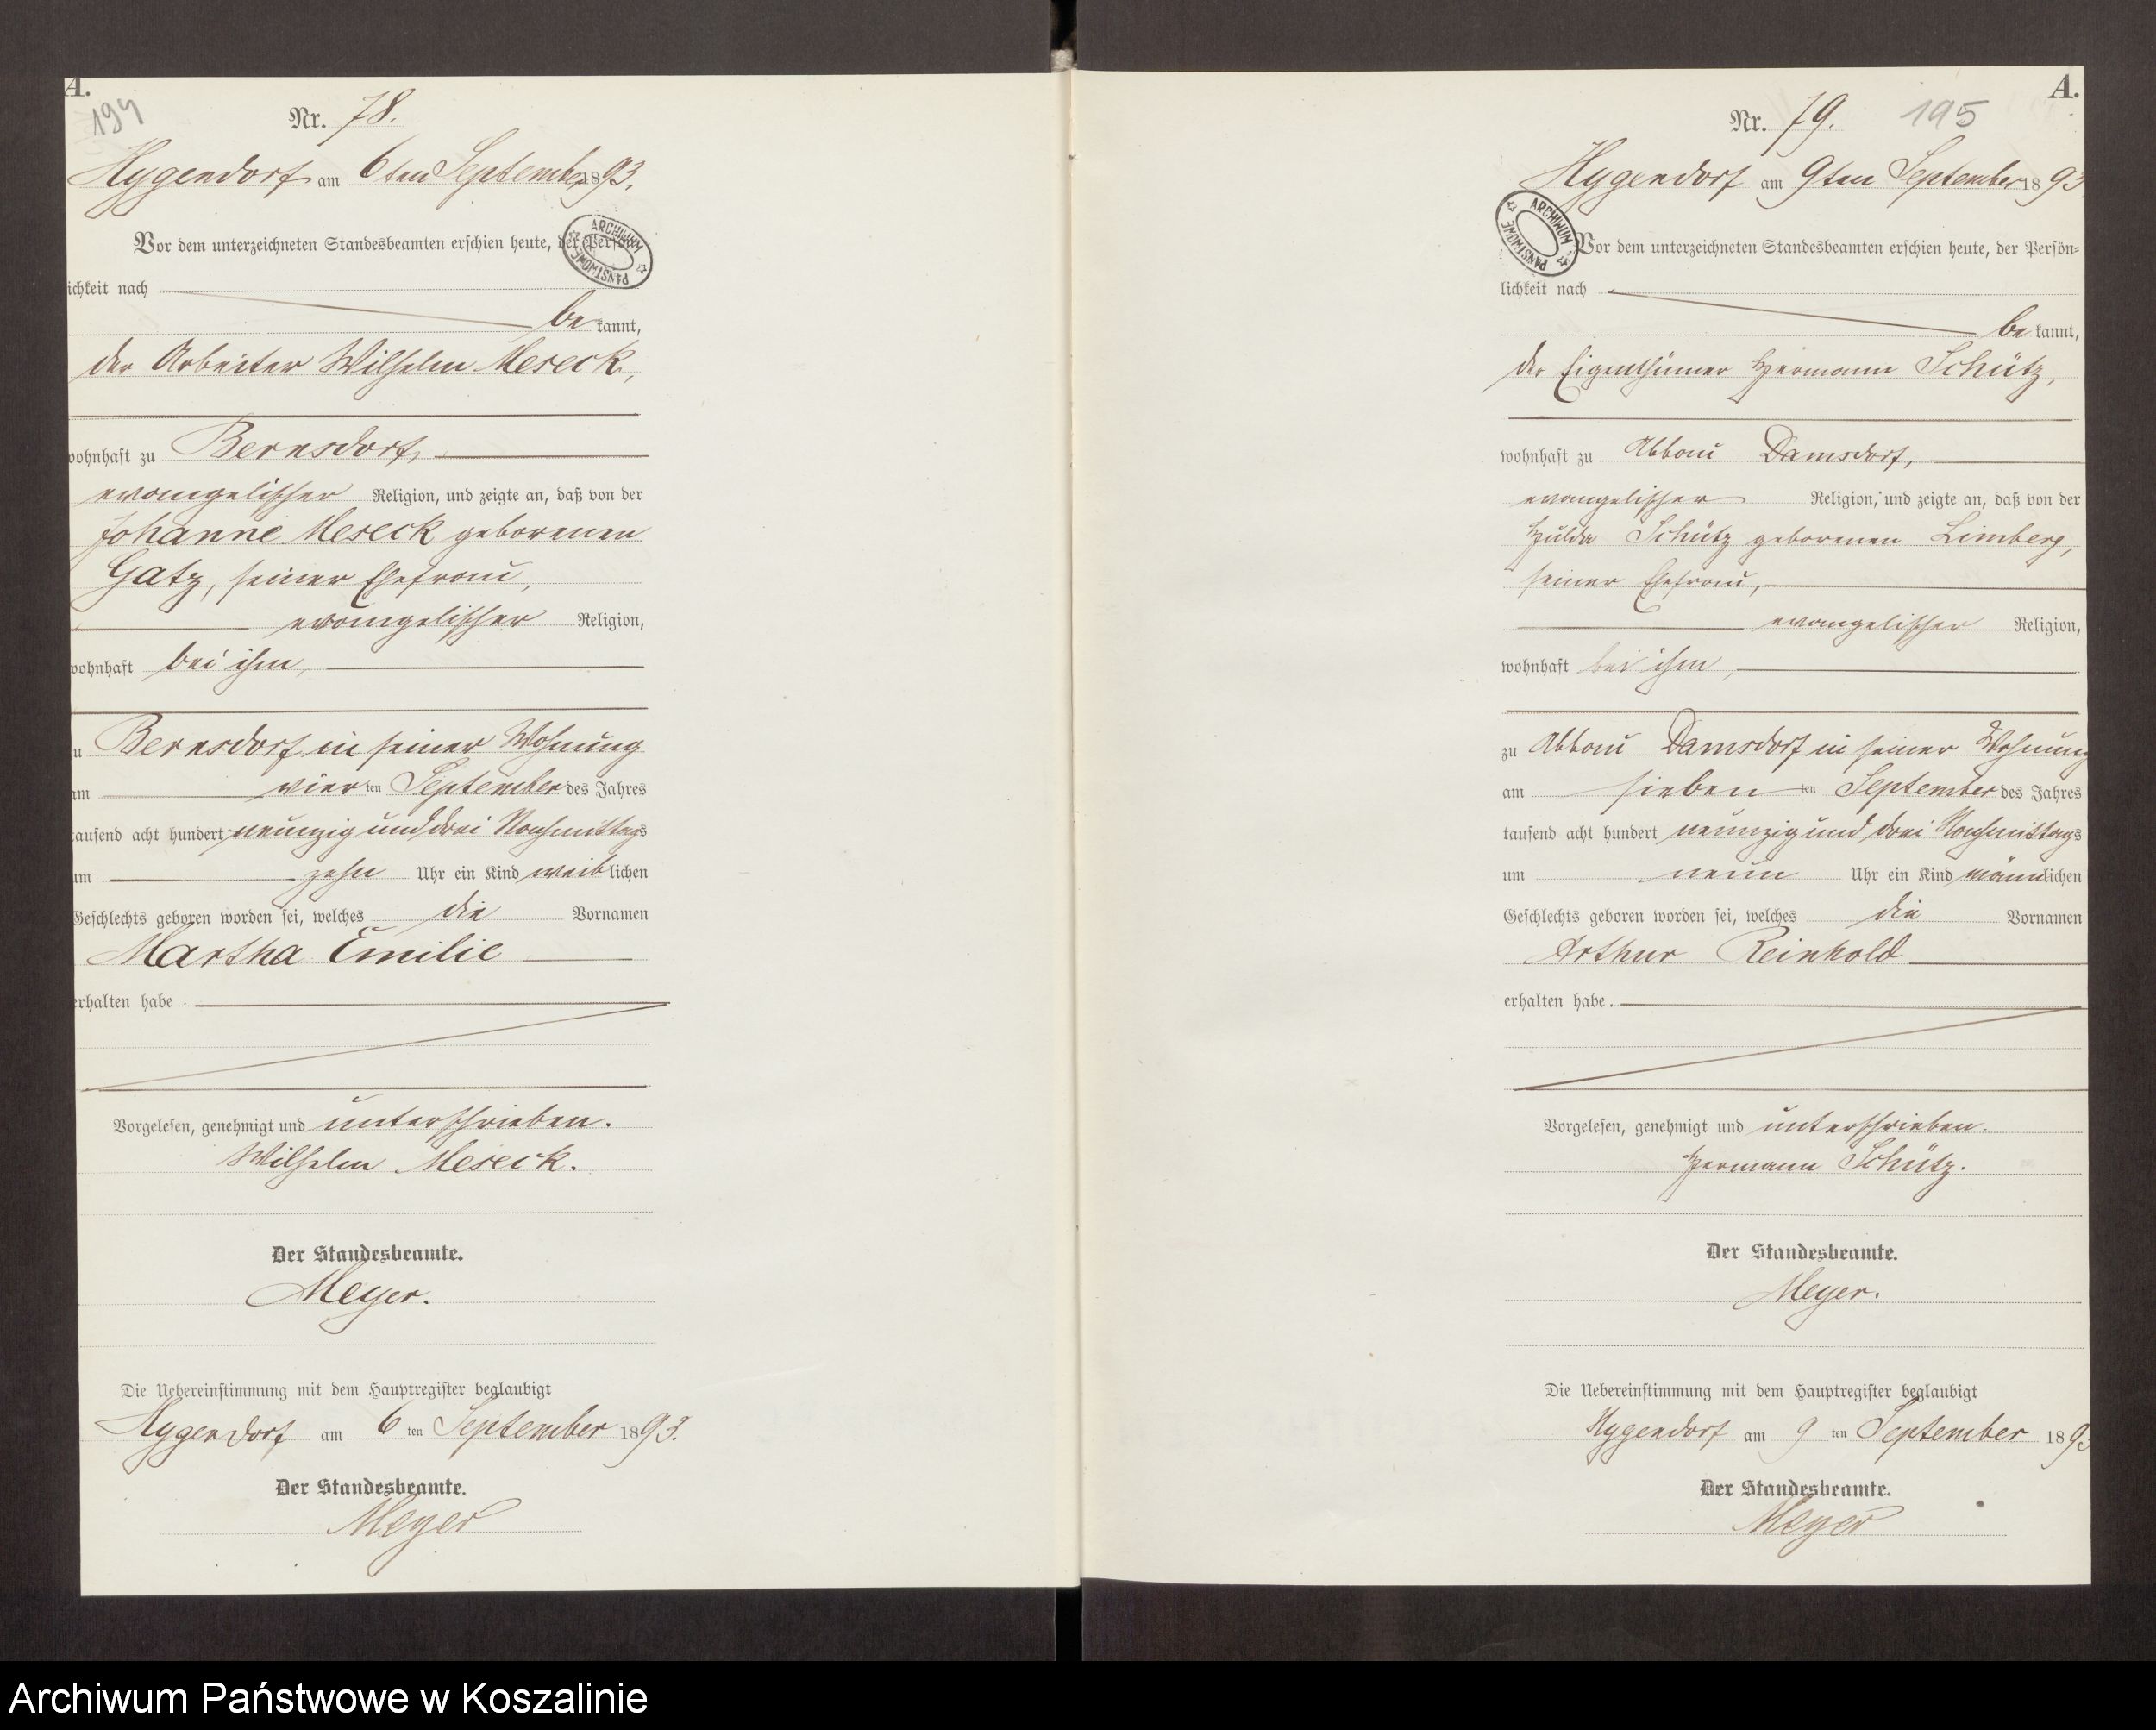 A.
194
Nr. 78.
Hygendorf am 6ten September 1893.
Vor dem unterzeichneten Standesbeamten erschien heute, der Persön
ichkeit nach
be kannt,
der Arbeiter Wilhelm Meseck,
wohnhaft zu Bernsdorf,
evangelischer Religion, und zeigte an, daß von der
Johanne Meseck geborenen
Gatz, seiner Ehefrau,
evangelischer Religion,
wohnhaft bei ihm,
zu Bernsdorf in seiner Wohnung
am vier ten September des Jahres
tausend acht hundert neunzig und drei Nachmittags
um zehn Uhr ein Kind weiblichen
Geschlechts geboren worden sei, welches die Vornamen
Martha Emilie
erhalten habe
Vorgelesen, genehmigt und unterschrieben.
Wilhelm Meseck.
Der Standesbeamte.
Meyer.
Die Uebereinstimmung mit dem Hauptregister beglaubigt
Hygendorf am 6 ten September 1893.
Der Standesbeamte.
Meyer
ARCHIWUM PAŃSTWOWE
A.
Nr. 79. 195
Hygendorf am 9ten September 1893
Vor dem unterzeichneten Standesbeamten erschien heute, der Persön=
lichkeit nach
be kannt,
der Eigenthümer Hermann Schütz,
wohnhaft zu Abbau Damsdorf,
evangelischer Religion, und zeigte an, daß von der
Hulda Schütz geborenen Limberg,
seiner Ehefrau,
evangelischer Religion,
wohnhaft bei ihm,
zu Abbau Damsdorf in seiner Wohnung
am sieben ten September des Jahres
tausend acht hundert neunzig und drei Nachmittags
um neun Uhr ein Kind männlichen
Geschlechts geboren worden sei, welches die Vornamen
Arthur Reinhold
erhalten habe.
Vorgelesen, genehmigt und unterschrieben.
Hermann Schütz.
Der Standesbeamte.
Meyer.
Die Uebereinstimmung mit dem Hauptregister beglaubigt
Hygendorf am 9 ten September 1893
Der Standesbeamte.
Meyer
ARCHIWUM PAŃSTWOWE
Archiwum Państwowe w Koszalinie